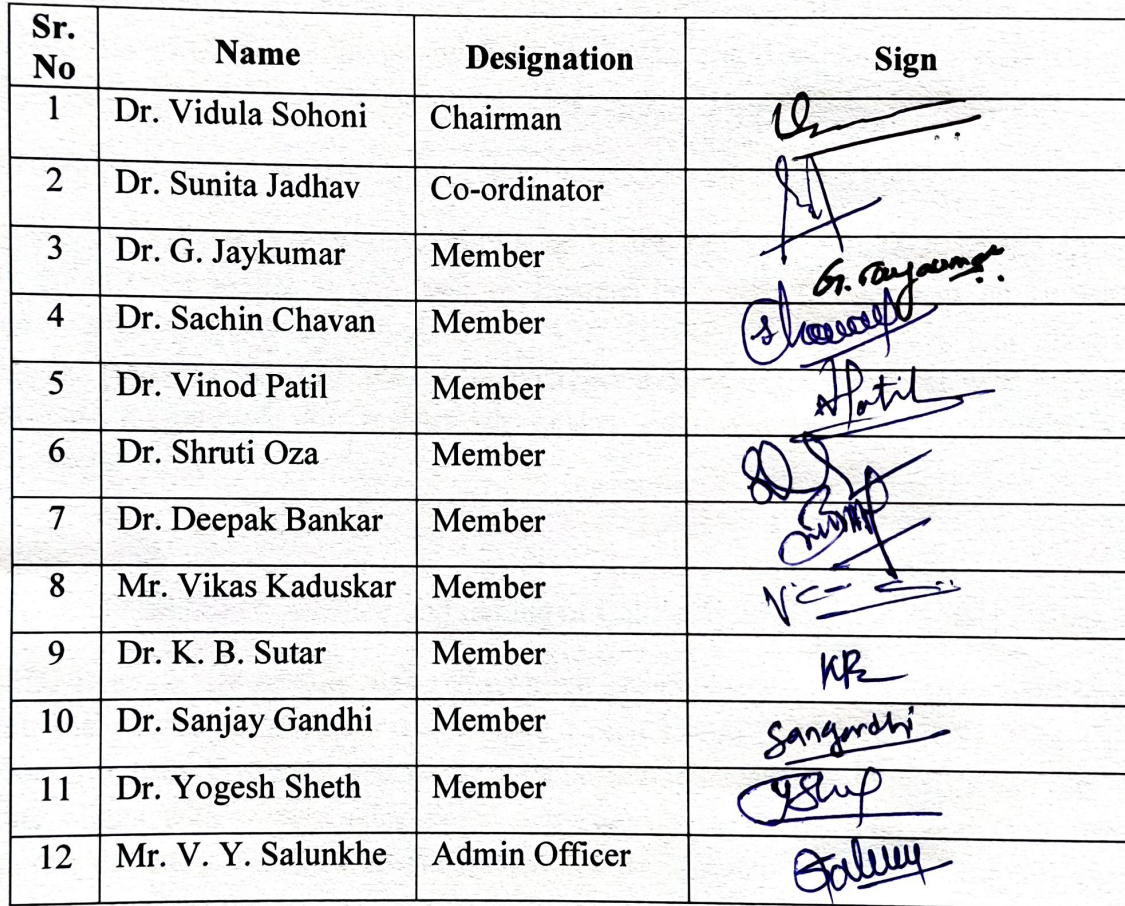 Sr. No Name Designation Sign
1 Dr. Vidula Sohoni Chairman
2 Dr. Sunita Jadhav Co-ordinator
3 Dr. G. Jaykumar Member
4 Dr. Sachin Chavan Member
5 Dr. Vinod Patil Member
6 Dr. Shruti Oza Member
7 Dr. Deepak Bankar Member
8 Mr. Vikas Kaduskar Member
9 Dr. K. B. Sutar Member
10 Dr. Sanjay Gandhi Member Sangandhi
11 Dr. Yogesh Sheth Member
12 Mr. V. Y. Salunkhe Admin Officer